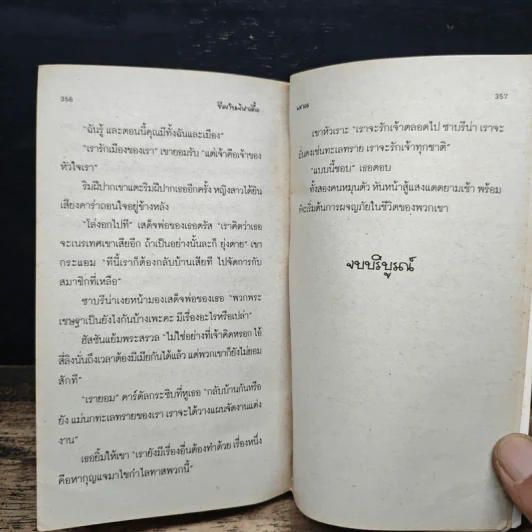 356
"ฉันรู้ และตอนนี้คุณมีทั้งฉันและเมือง"
"เรารักเมืองของเรา" เขายอมรับ "แต่เจ้าคือเจ้าของ
หัวใจเรา"
ริมฝีปากเขาแตะริมฝีปากเธออีกครั้ง หญิงสาวได้ยิน
เสียงคาร่าถอนใจอยู่ข้างหลัง
"โล่งอกไปที" เสด็จพ่อของเธอตรัส "เราคิดว่าเธอ
จะเนรเทศเขาเสียอีก ถ้าเป็นอย่างนั้นละก็ ยุ่งตาย" เขา
กระแอม "ทีนี้เราก็ต้องกลับบ้านเสียที ไปจัดการกับ
สมาชิกที่เหลือ"
ซาบรีน่าเงยหน้ามองเสด็จพ่อของเธอ "พวกพระ
เชษฐาเป็นยังไงกันบ้างเพะคะ มีเรื่องอะไรหรือเปล่า"
ฮัสซันแย้มพระสรวล "ไม่ใช่อย่างที่เจ้าคิดหรอก ไอ้
สี่ลิงนั่นถึงเวลาต้องมีเมียกันได้แล้ว แต่พวกเขาก็ยังไม่ยอม
สักที"
"เรายอม" คาร์ดัลกระซิบที่หูเธอ "กลับบ้านกันหรือ
ยัง แม่นกทะเลทรายของเรา เราจะได้วางแผนจัดงานแต่ง
งาน"
เธอยิ้มให้เขา "เรายังมีเรื่องอื่นต้องทำด้วย เรื่องหนึ่ง
คือหากุญแจมาไขกำไลทาสพวกนี้"
357
เขาหัวเราะ "เราจะรักเจ้าตลอดไป ซาบรีน่า เราจะ
มั่นคงเช่นทะเลทราย เราจะรักเจ้าทุกชาติ"
"แบบนี้ชอบ" เธอตอบ
ทั้งสองคนหมุนตัว หันหน้าสู้แสงแดดยามเช้า พร้อม
จะเริ่มต้นการผจญภัยในชีวิตของพวกเขา
จบบริบูรณ์